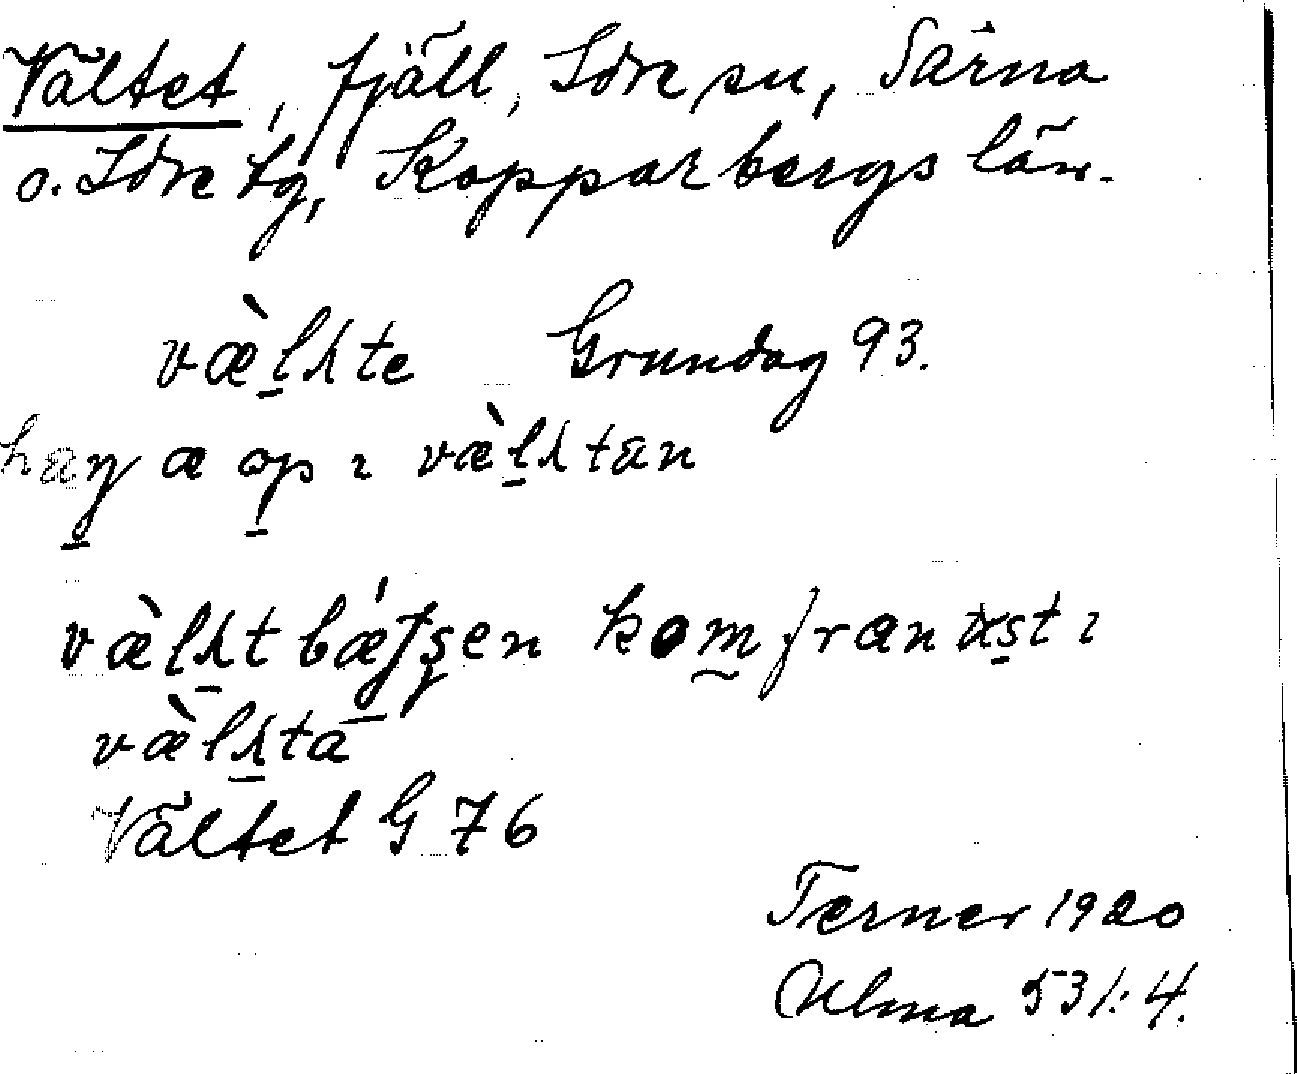 Vältet, fjäll, Idre sn, Särna
o. Idre tg, Kopparbergs län.
væ̀lʌte Grundag 93.
haŋ æ op ı væ̀lʌtan
væ̀lʌt kom fran ı
væ̀lʌta
Vältet G 76
Terner 1920
Ulma 531:4.